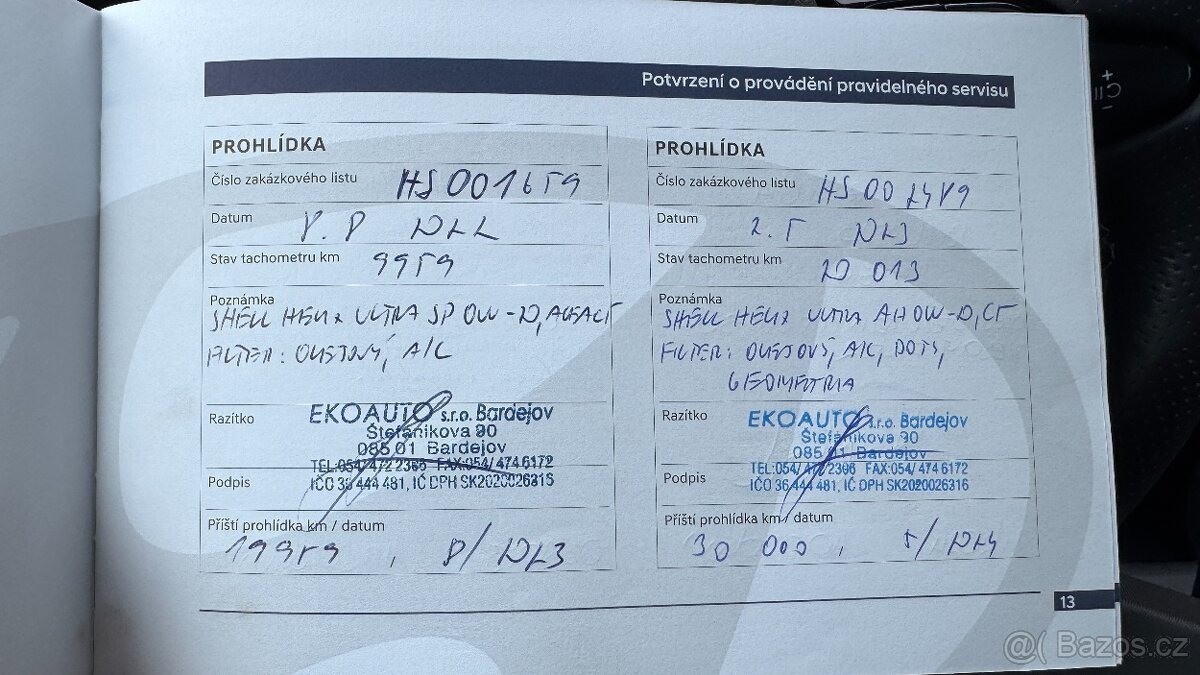 Potvrzení o provádění pravidelného servisu
PROHLÍDKA
Číslo zakázkového listu HS001659
Datum 8.8 2022
Stav tachometru km 9959
Poznámka
SHELL HELIX ULTRA SP 0W-20,
FILTER: OLEJOVÝ, A/C
Razítko
EKOAUTO s.r.o. Bardejov
Štefánikova 90
085 01 Bardejov
TEL:054/472 2386 FAX:054/474 6172
IČO 36 444 481, IČ DPH SK2020026316
Podpis
Příští prohlídka km / datum
19959, 8/2023
PROHLÍDKA
Číslo zakázkového listu
Datum 2.5 2023
Stav tachometru km 20 013
Poznámka
SHELL HELIX ULTRA AH 0W-20,
FILTER: OLEJOVÝ, A/C, DOT4,
GEOMETRIA
Razítko
EKOAUTO s.r.o. Bardejov
Štefánikova 90
085 01 Bardejov
TEL:054/472 2386 FAX:054/474 6172
IČO 36 444 481, IČ DPH SK2020026316
Podpis
Příští prohlídka km / datum
30 000, 5/2024
13
@( Bazos.cz